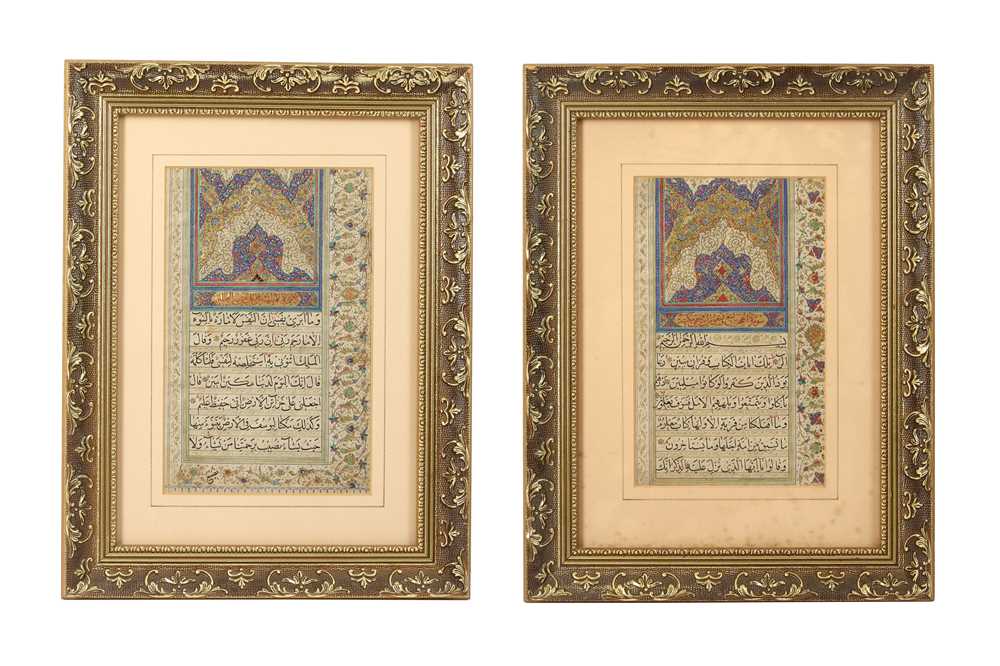 وَمَا أُبَرِّئُ نَفْسِي إِنَّ النَّفْسَ لَأَمَّارَةٌ بِالسُّوءِ
إِلَّا مَا رَحِمَ رَبِّي إِنَّ رَبِّي غَفُورٌ رَحِيمٌ وَقَالَ
الْمَلِكُ ائْتُونِي بِهِ أَسْتَخْلِصْهُ لِنَفْسِي فَلَمَّا كَلَّمَهُ
قَالَ إِنَّكَ الْيَوْمَ لَدَيْنَا مَكِينٌ أَمِينٌ قَالَ
اجْعَلْنِي عَلَى خَزَائِنِ الْأَرْضِ إِنِّي حَفِيظٌ عَلِيمٌ
وَكَذَلِكَ مَكَّنَّا لِيُوسُفَ فِي الْأَرْضِ يَتَبَوَّأُ مِنْهَا
حَيْثُ يَشَاءُ نُصِيبُ بِرَحْمَتِنَا مَنْ نَشَاءُ وَلَا
بِسْمِ اللَّهِ الرَّحْمَنِ الرَّحِيمِ
الر تِلْكَ آيَاتُ الْكِتَابِ وَقُرْآنٍ مُبِينٍ رُبَمَا
يَوَدُّ الَّذِينَ كَفَرُوا لَوْ كَانُوا مُسْلِمِينَ ذَرْهُمْ
يَأْكُلُوا وَيَتَمَتَّعُوا وَيُلْهِهِمُ الْأَمَلُ فَسَوْفَ يَعْلَمُونَ
وَمَا أَهْلَكْنَا مِنْ قَرْيَةٍ إِلَّا وَلَهَا كِتَابٌ مَعْلُومٌ
مَا تَسْبِقُ مِنْ أُمَّةٍ أَجَلَهَا وَمَا يَسْتَأْخِرُونَ
وَقَالُوا يَا أَيُّهَا الَّذِي نُزِّلَ عَلَيْهِ الذِّكْرُ إِنَّكَ